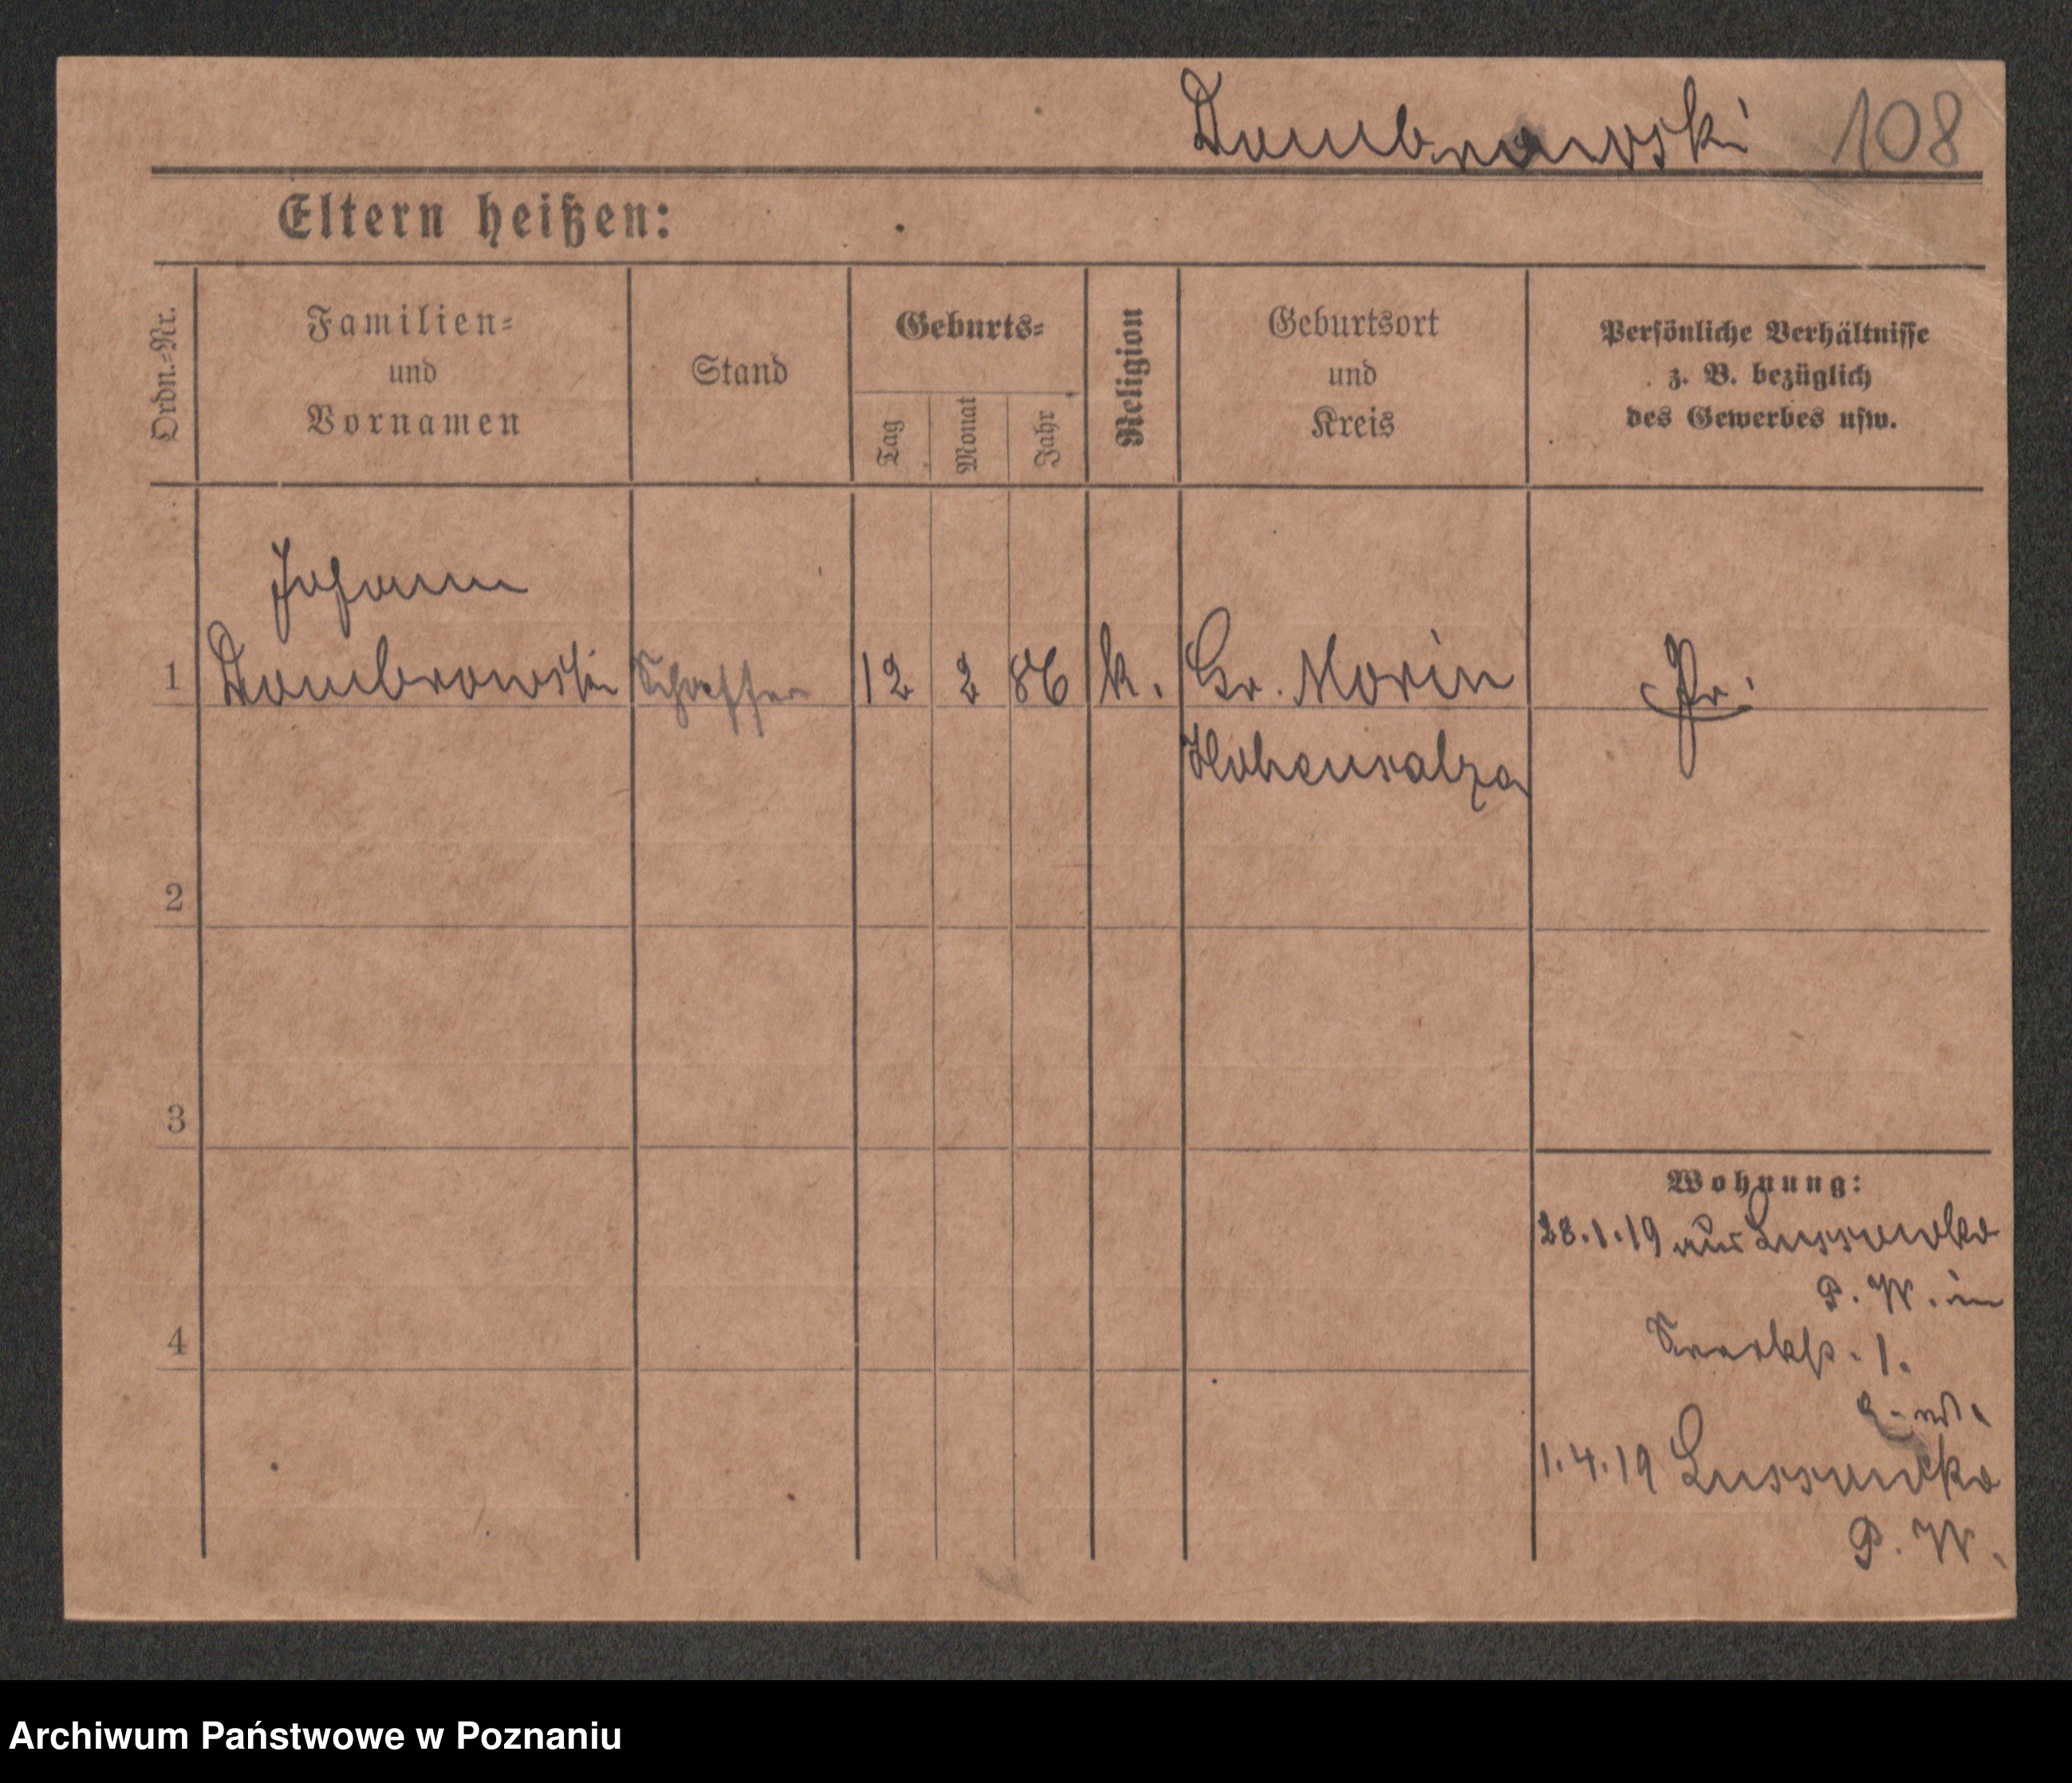 Dombrowski 108
Eltern heißen:
Ordn.=Nr.
Familien=
und
Vornamen
Stand
Geburts=
Tag
Monat
Jahr
Religion
Geburtsort
und
Kreis
Persönliche Verhältnisse
z. B. bezüglich
des Gewerbes usw.
Johann
1 Dombrowski Schaffner 12 2 86 k. Gr. Morin Pr.
Hohensalza
2
3
4
Wohnung:
28.1.19 aus Lussowko
P. W. in
1.
1.4.19 Lussowko
P. W.
Archiwum Państwowe w Poznaniu